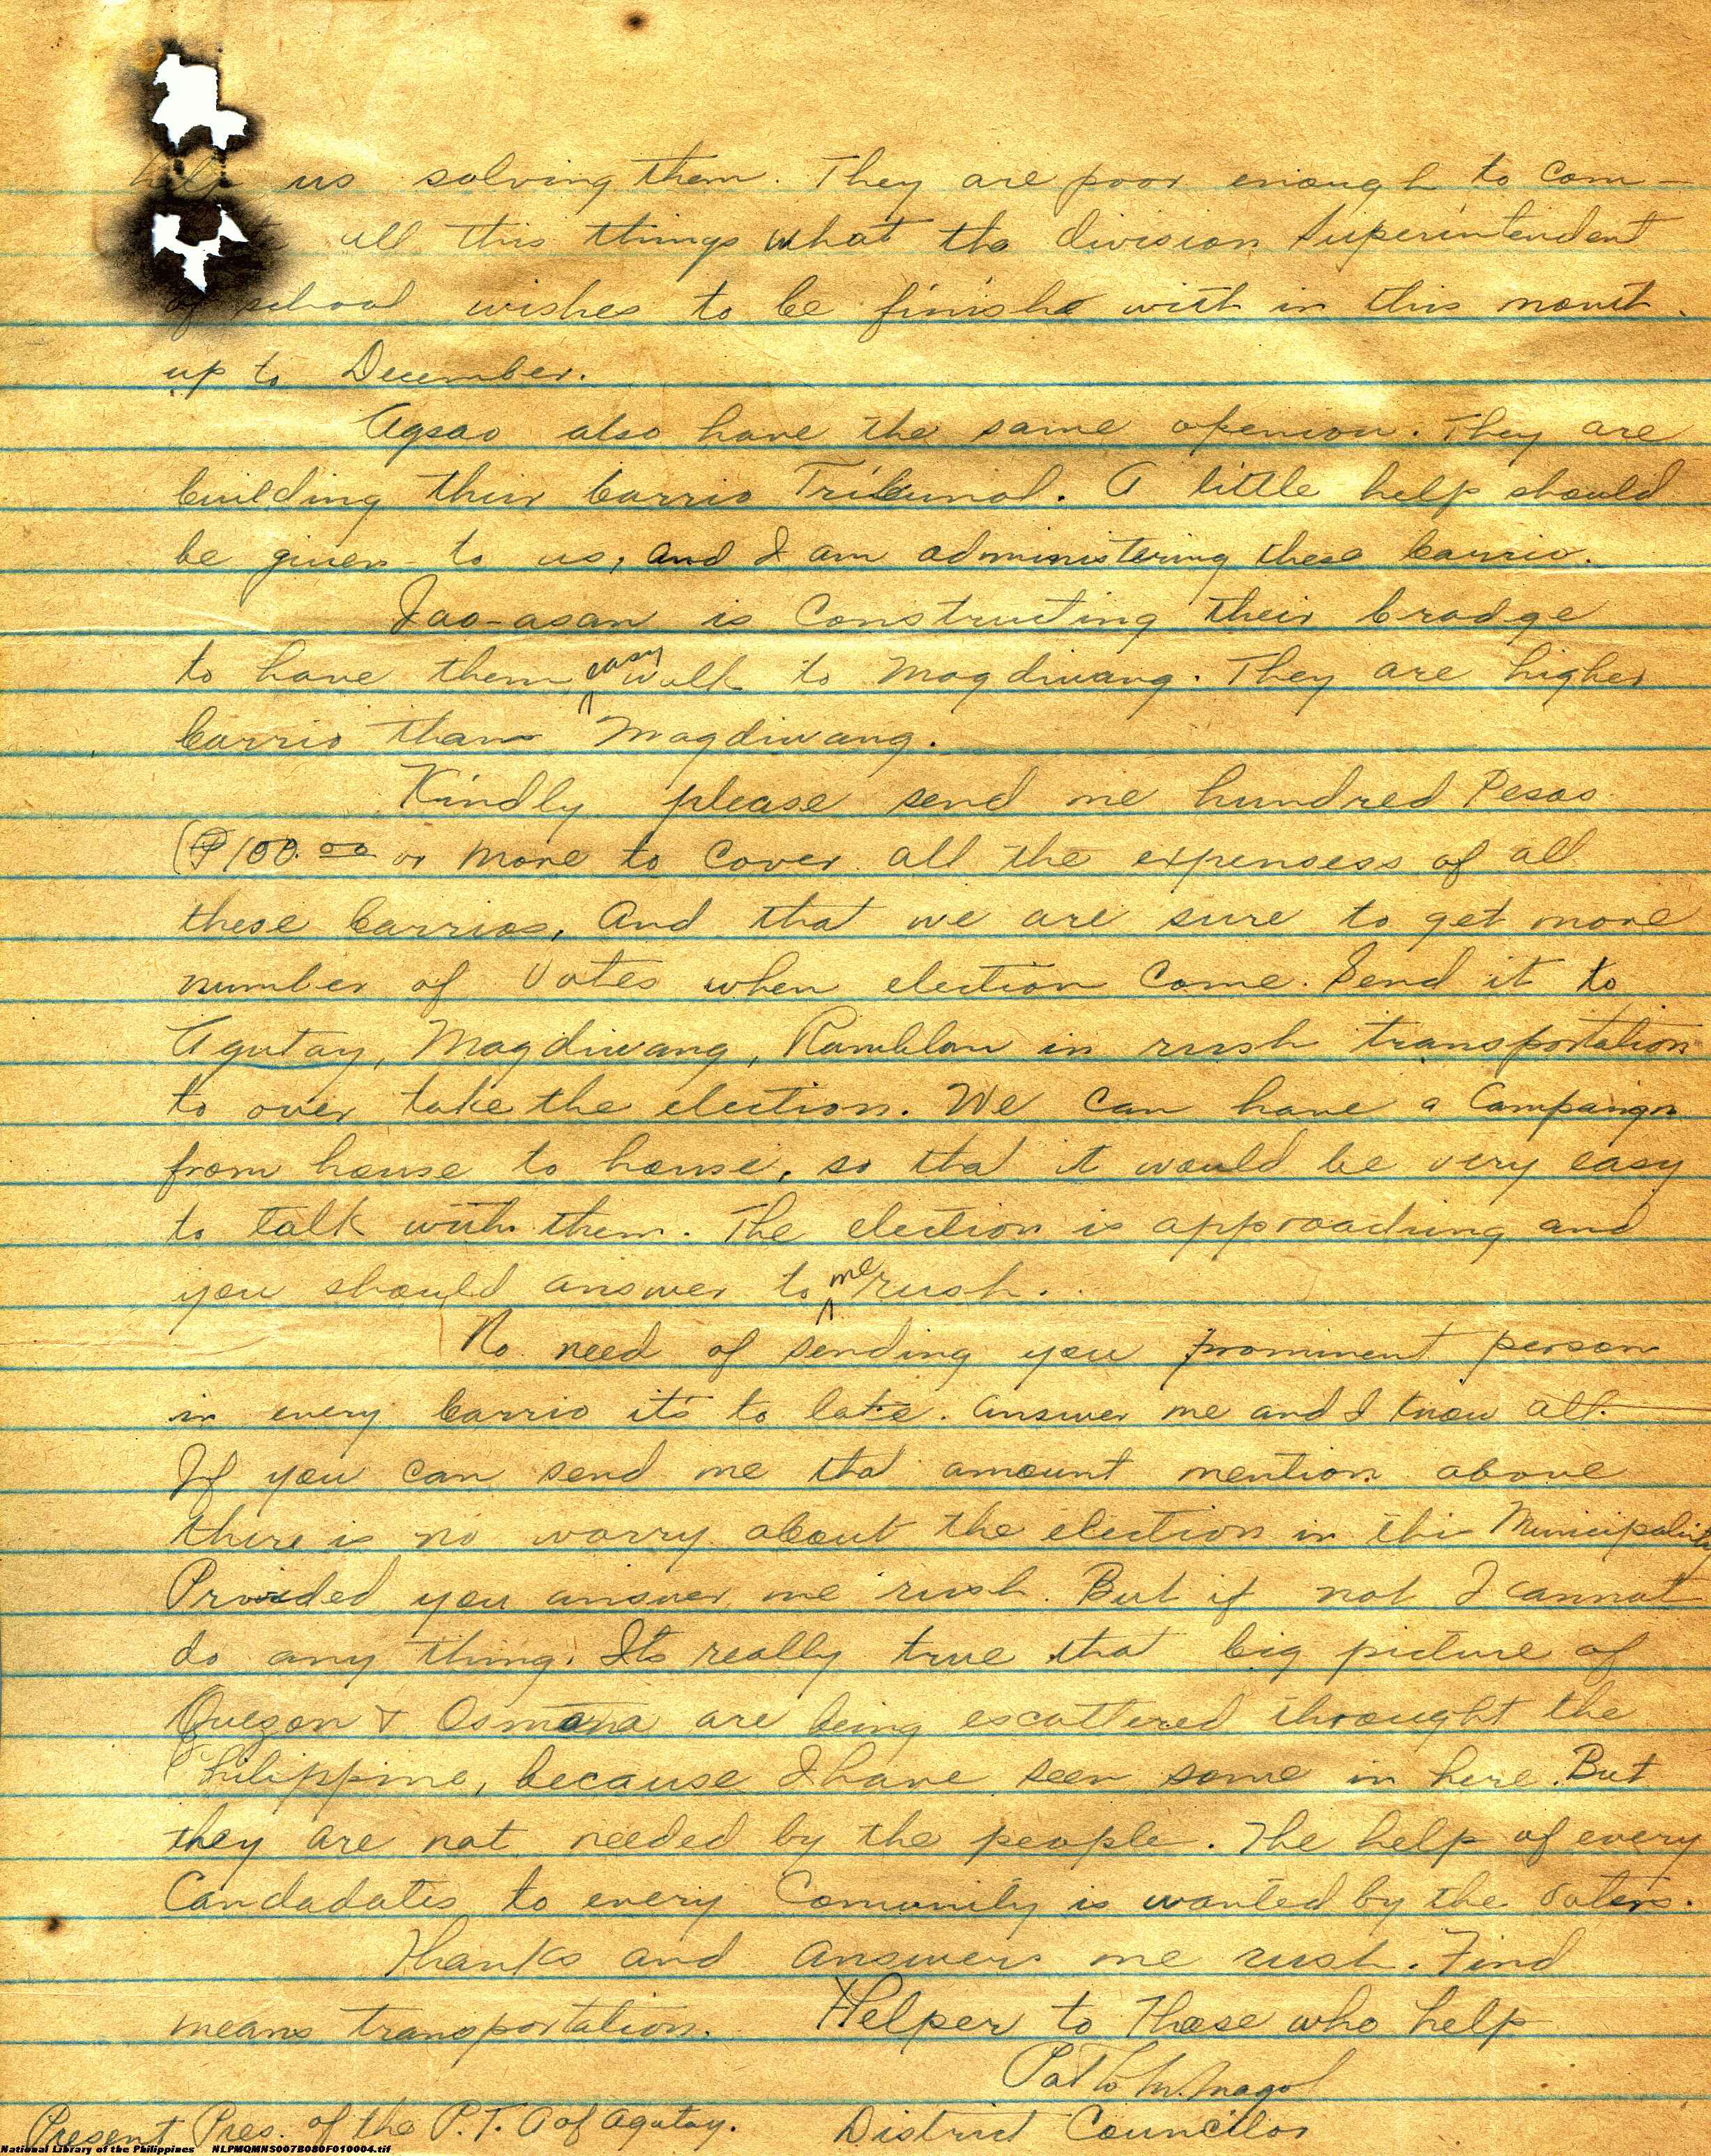 help us solving them. They are poor enough to com-
all this things what the division Superintendent
of school wishes to be finishe with in this month.
up to December.
Agsao also have the same openion. They are
building thier barrio Tribunal. A little help should
be given to us, and I am administering these barrio.
Jao-asan is Constructing their bradge
to have them easy walk to Magdiwang. They are higher
barrio than Magdiwang.
Kindly please send me hundred Pesos
(₱100.00 or more to cover all the expensess of all
these barrios, And that we are sure to get more
number of Votes when election come. Send it to
Agutay, Magdiwang, Romblon in rush transportation
to over take the election. We can have a Campaingn
from house to house, so that it would be very easy
to talk with them. The election is approaching and
you should answer to me rush.
No need of sending you prominent person
in every barrio it's to late. answer me and I know all.
If you can send me that amount mention above
there is no worry about the election in this Municipality
Provided you answer me rush. But if not I cannot
do any thing. Its really true that big picture of
Quezon & Osmana are being escattered throught the
Philippine, because I have seen some in here. But
they are not needed by the people. The help of every
Candadates to every Comunity is wanted by the voters.
Thanks and answers me rush. Find
means transportation. Helper to Those who help
District Councilor
Present Pres. of the P.T.A of Agutay.
National Library of the Philippines NLPMQMNS007B080F010004.tif